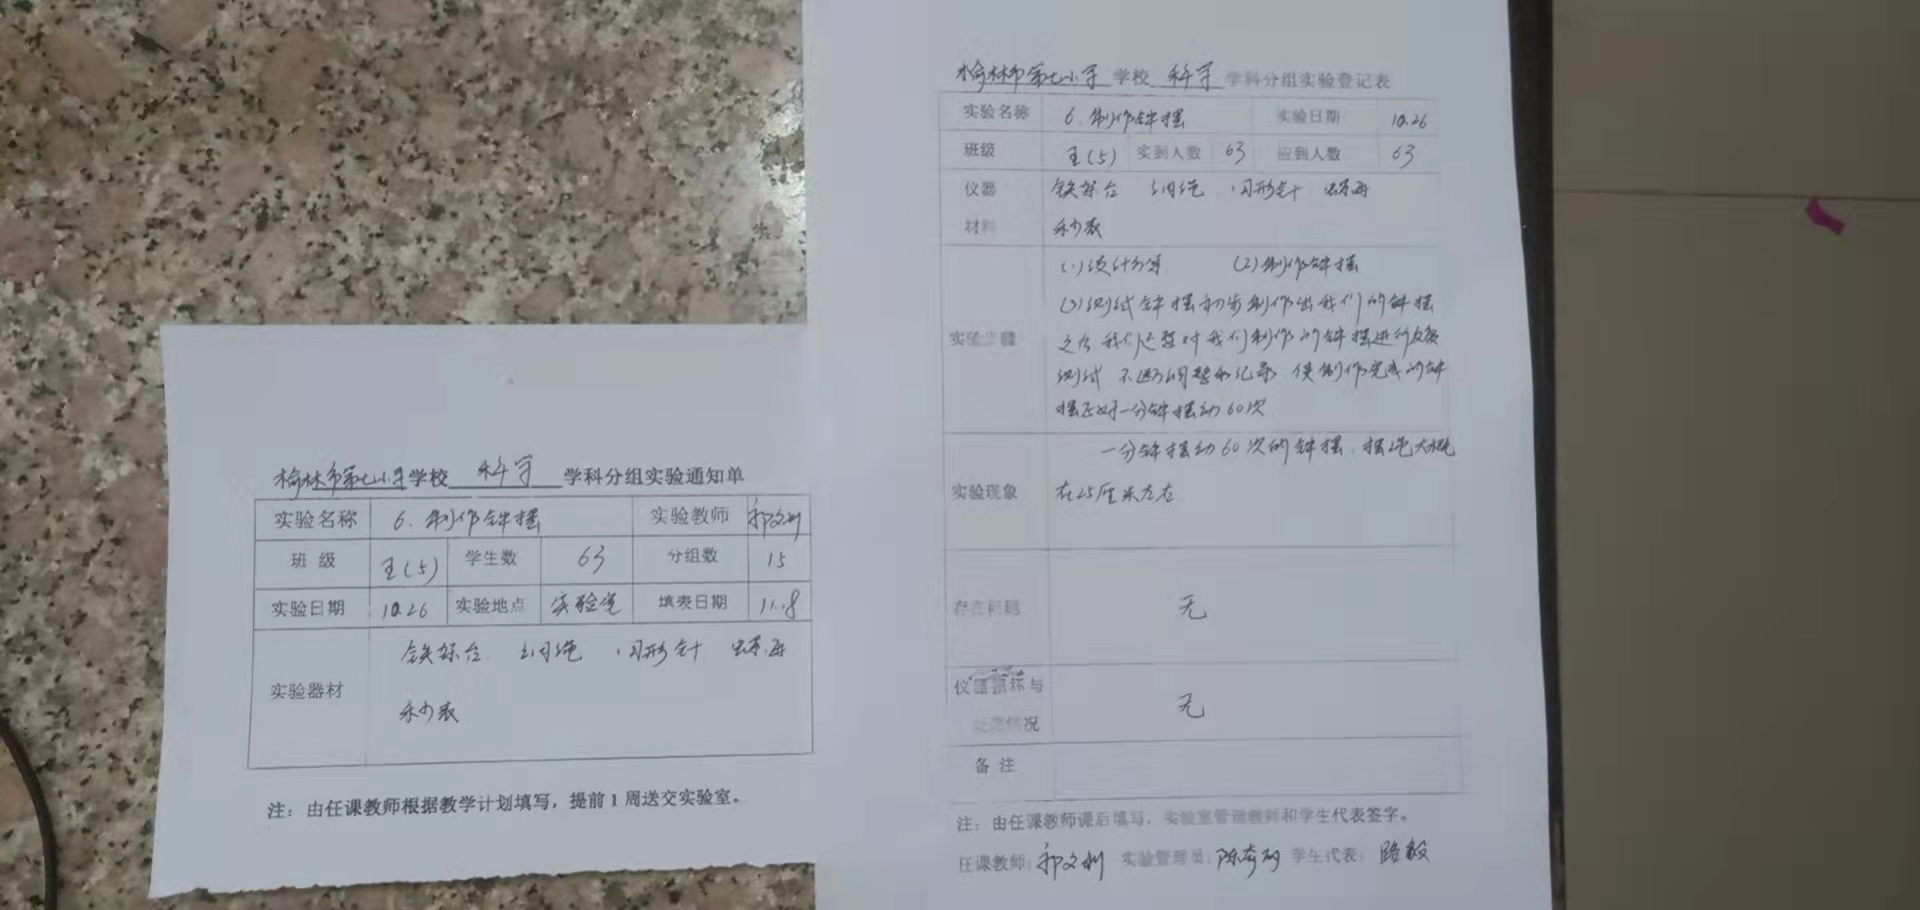 榆林市第七小学学校 科学 学科分组实验通知单
实验名称 6.制作钟摆 实验教师
班 级 五(5) 学生数 63 分组数 15
实验日期 10.26 实验地点 实验室 填表日期 11.8
铁架台 细绳 回形针 螺母
实验器材
秒表
注：由任课教师根据教学计划填写，提前1周送交实验室。
榆林市第七小学 学校 科学 学科分组实验登记表
实验名称 6.制作钟摆 实验日期 10.26
班级 五(5) 实到人数 63 应到人数 63
仪器 铁架台 细绳 回形针 螺母
材料 秒表
(1)设计方案 (2)制作钟摆
(3)测试钟摆初步制作出我们的钟摆
实验步骤 之后我们还要对我们制作的钟摆进行反复
测试 不断调整和记录 使制作完成的钟
摆正好一分钟摆动60次
一分钟摆动60次的钟摆，摆绳大概
实验现象 在25厘米左右
存在问题 无
仪器损坏与 无
处理情况
备注
注：由任课教师课后填写，实验室管理教师和学生代表签字。
任课教师： 实验管理员： 学生代表： 路毅